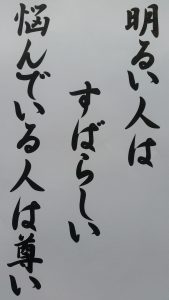 明るい人は
すばらしい
悩んでいる人は尊い